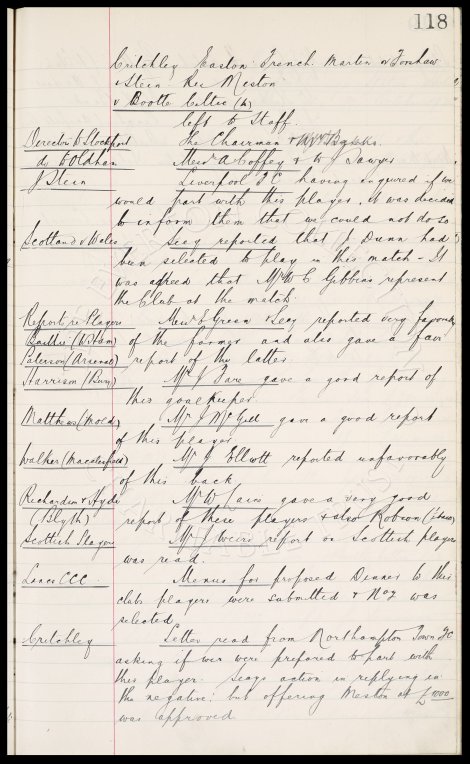 118
Critchley Easton French Martin v Forshaw
& Stein. Res Meston
v Bootle Celtic (h)
left to Staff.
Director to Stockport The Chairman &
do to Oldham Messrs A Coffey & W J Sawyer
J Stein Liverpool F C having enquired if we
would part with this player, it was decided
to inform them that we could not do so
Scotland v Wales Secy reported that J Dunn had
been selected to play in this match - It
was agreed that Mr W C Gibbins represent
the Club at the match.
Reports re Players Messrs Green & Secy reported very favourably
(W Ham) of the former and also gave a fair
Paterson (Arsenal) report of the latter
Harrison (Bury) Mr J Fare gave a good report of
this goalkeeper.
Matthews (Mold) Mr J McGill gave a good report
of this player
Walker (Macclesfield) Mr J Elliott reported unfavorably
of this back
Richardson & Hyde Mr W gave a very good
(Blyth) report of these players & also Robson
Scottish Players Mr J Weirs report on Scottish players
was read.
Lancs CCC. Menus for proposed Dinner to this
clubs players were submitted & No 2 was
selected
Critchley Letter read from Northampton Town FC
asking if we were prepared to part with
this player. Secys action in replying in
the negative: but offering Meston at £1000
was approved